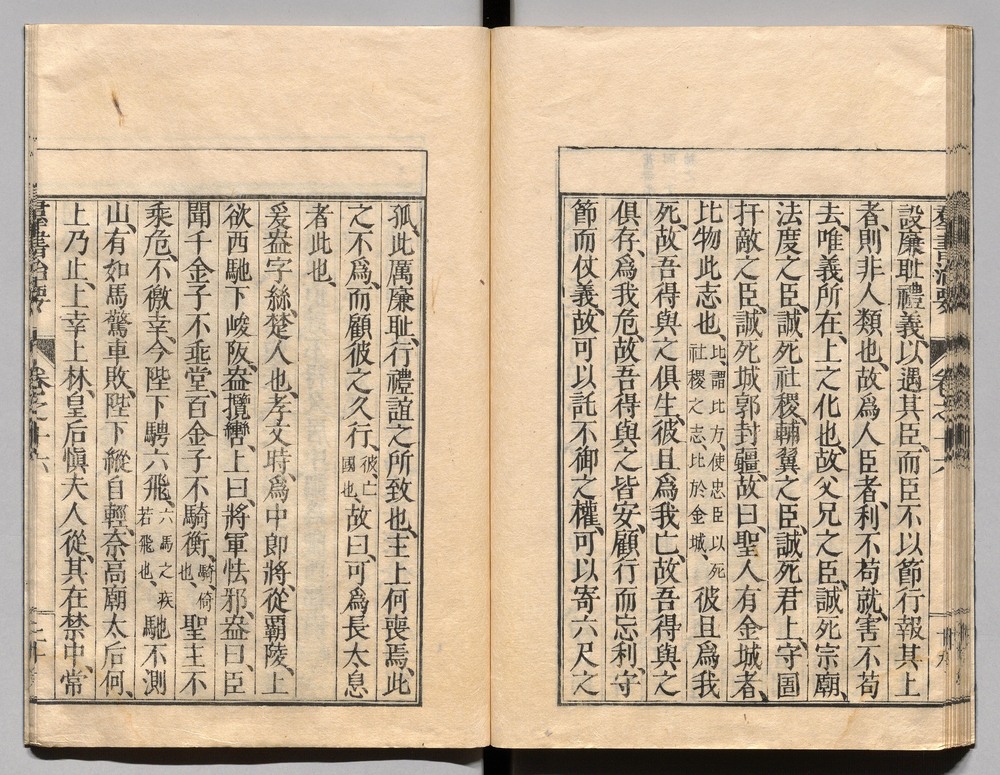 設廉耻禮義、以遇其臣、而臣不以節行報其上
者、則非人類也、故爲人臣者、利不苟就、害不苟
去、唯義所在、上之化也、故父兄之臣、誠死宗廟、
法度之臣、誠死社稷、輔翼之臣、誠死君上、守圄
扞敵之臣、誠死城郭封疆、故曰、聖人有金城者、
比物此志也、比、謂比方、使忠臣以死社稷之志、比於金城、彼且爲我
死、故吾得與之俱生、彼且爲我亡、故吾得與之
俱存、爲我危、故吾得與之皆安、顧行而忘利、守
節而仗義、故可以託不御之權、可以寄六尺之
孤、此厲廉耻、行禮誼之所致也、主上何喪焉、此
之不爲、而顧彼之久行、彼、亡國也、故曰、可爲長太息
者此也、
爰盎字絲、楚人也、孝文時、爲中郎將、從覇陵、上
欲西馳下峻阪、盎攬轡、上曰、將軍怯邪、盎曰、臣
聞千金子不垂堂、百金子不騎衡、騎、倚也、聖主不
乘危、不徼幸、今陛下騁六飛、六馬之疾若飛也、馳不測
山、有如馬驚車敗、陛下縱自輕、奈高廟太后何、
上乃止、上幸上林、皇后愼夫人從、其在禁中、常
羣書治要 卷之十六